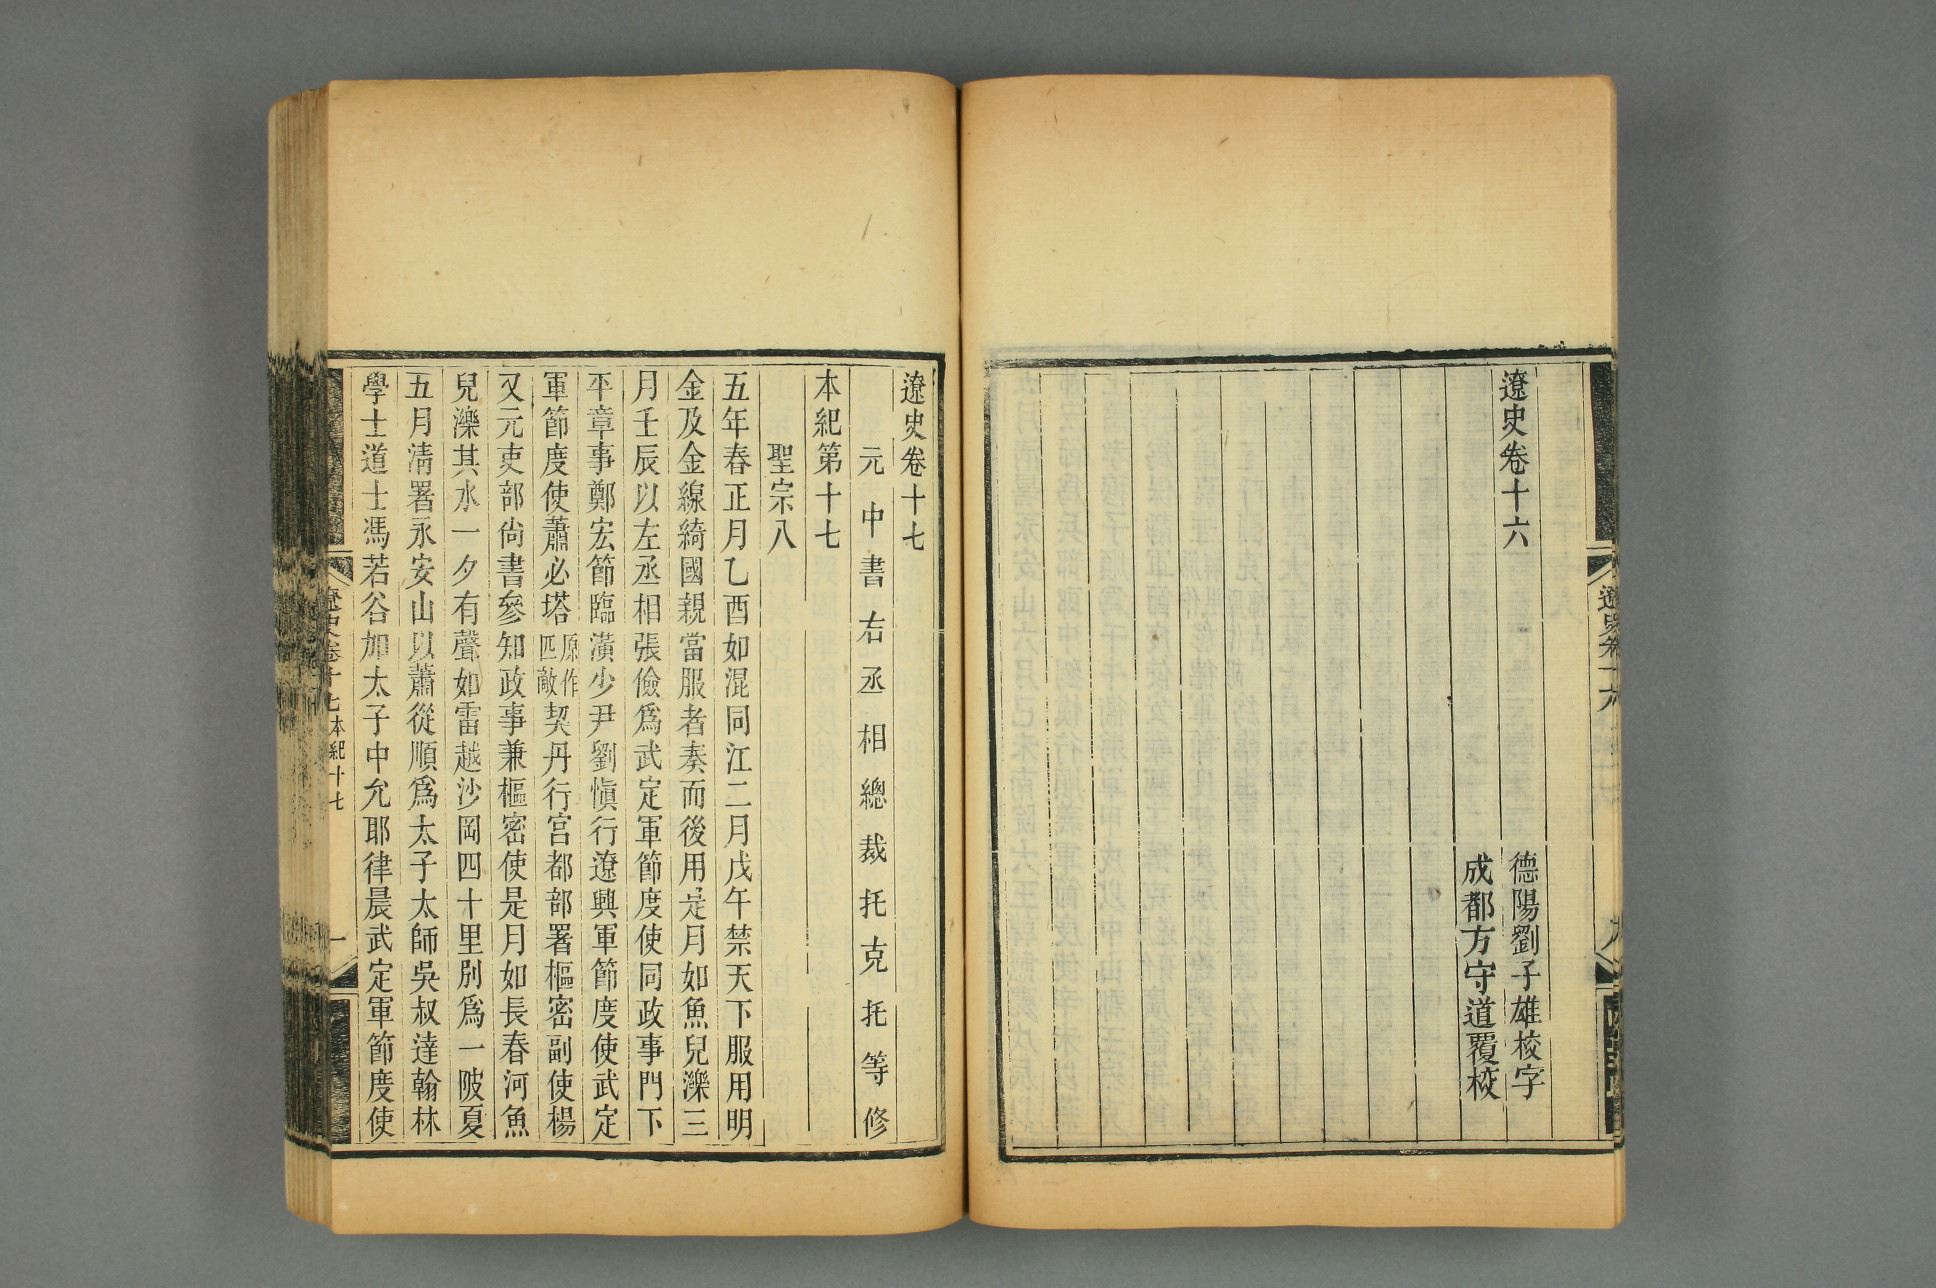 遼史卷十六
德陽劉子雄校字
成都方守道覆校
遼史卷十六
遼史卷十七
元中書右丞相總裁托克托等修
本紀第十七
聖宗八
五年春正月乙酉如混同江二月戊午禁天下服用明
金及金線綺國親當服者奏而後用是月如魚兒濼三
月壬辰以左丞相張儉爲武定軍節度使同政事門下
平章事鄭宏節臨潢少尹劉愼行遼興軍節度使武定
軍節度使蕭必塔原作匹敵契丹行宮都部署樞密副使楊
又元吏部尙書參知政事兼樞密使是月如長春河魚
兒濼其水一夕有聲如雷越沙岡四十里別爲一陂夏
五月清暑永安山以蕭從順爲太子太師吳叔達翰林
學士道士馮若谷加太子中允耶律晨武定軍節度使
遼史卷十七 本紀十七
一